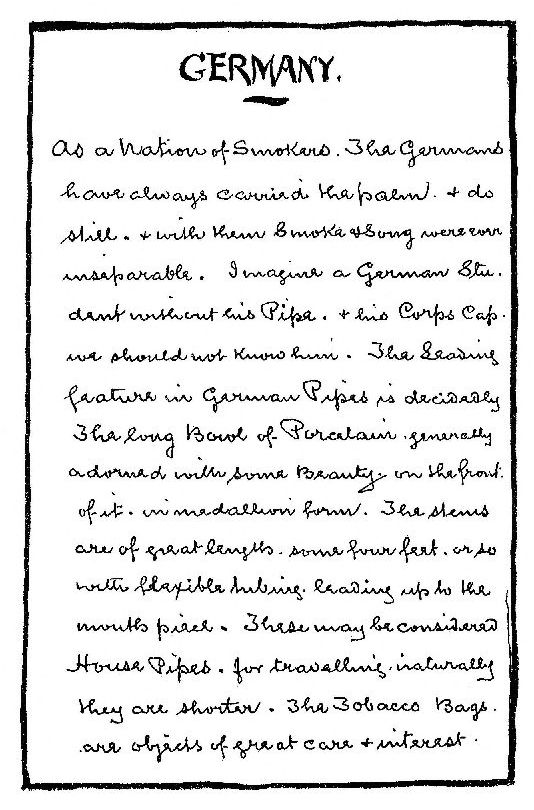 GERMANY.
As a Nation of Smokers. The Germans
have always carried the palm. & do
still. & with them Smoke & Song were ever
inseparable. Imagine a German Stu.
dent without his Pipe. & his Corps Cap.
we should not know him. The Leading
feature in German Pipes is decidedly
The long Bowl of Porcelain. generally
adorned with some Beauty. on the front.
of it. in medallion form. The stems
are of great length. some four feet. or so
with flexible tubing. leading up to the
mouth piece. These may be considered
House Pipes. for travelling. naturally
they are shorter. The Tobacco Bags.
are objects of great care & interest.